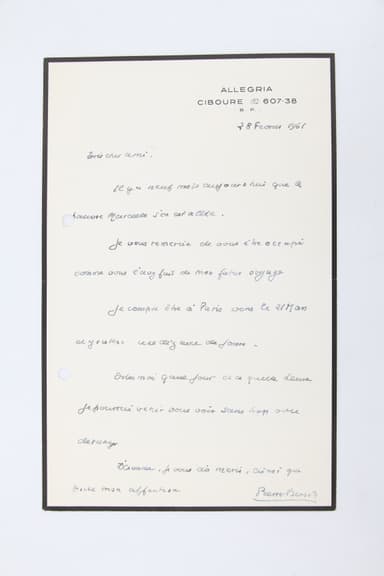 ALLEGRIA
CIBOURE ☏ 607-38
B. P.
28 Fevrier 1961
Très cher ami.
Il y a neuf mois aujourd'hui que la
pauvre Marcelle s'en est allée.
Je vous remercie de vous être occupé
comme vous l'avez fait de mon futur voyage
Je compte être à Paris vers le 21 Mars
et y rester une dizaine de jours.
Dites moi quel jour et à quelle heure
je pourrai venir vous voir sans trop vous
déranger
D'avance, je vous dis merci, ainsi que
toute mon affection
Pierre Benoit